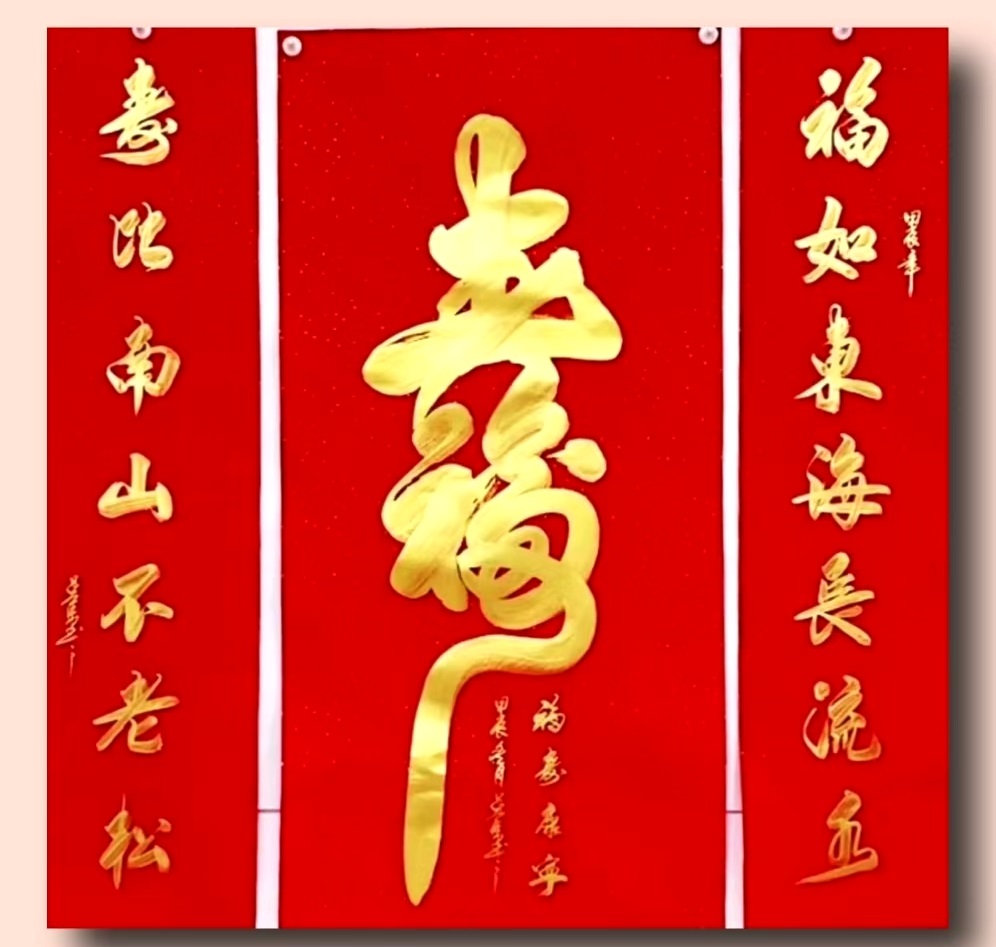 福如東海長流水
甲辰年
壽福
福壽康寧
甲辰
壽比南山不老松